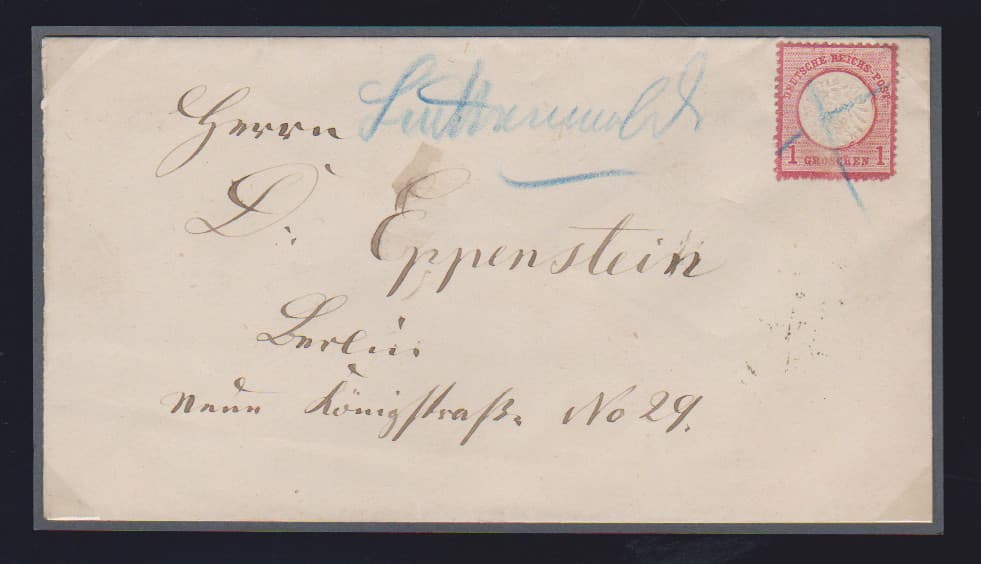 Luckenwalde
DEUTSCHE REICHS-POST
1 GROSCHEN 1
Herrn
D. Eppenstein
Berlin.
neue Königstraß. No 29.